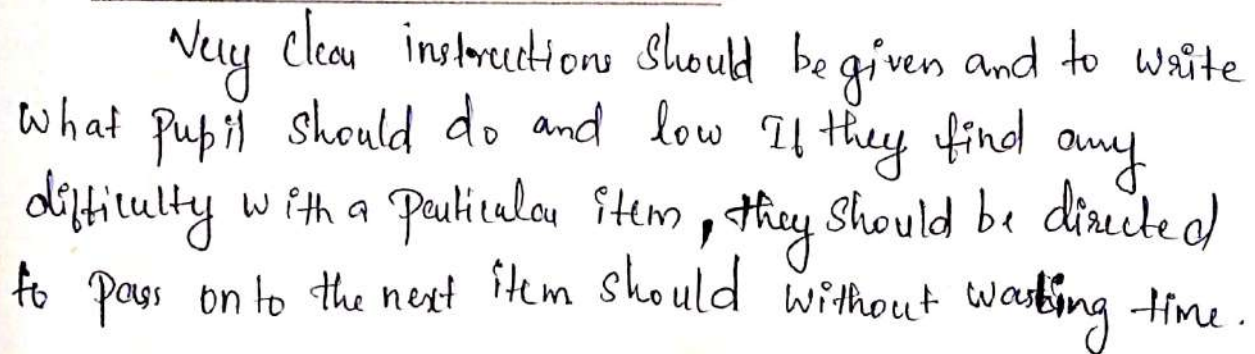 Very clear instructions should be given and to write
what pupil should do and low If they find any
difficulty with a particular item, they should be directed
to pass on to the next item should without wasting time.